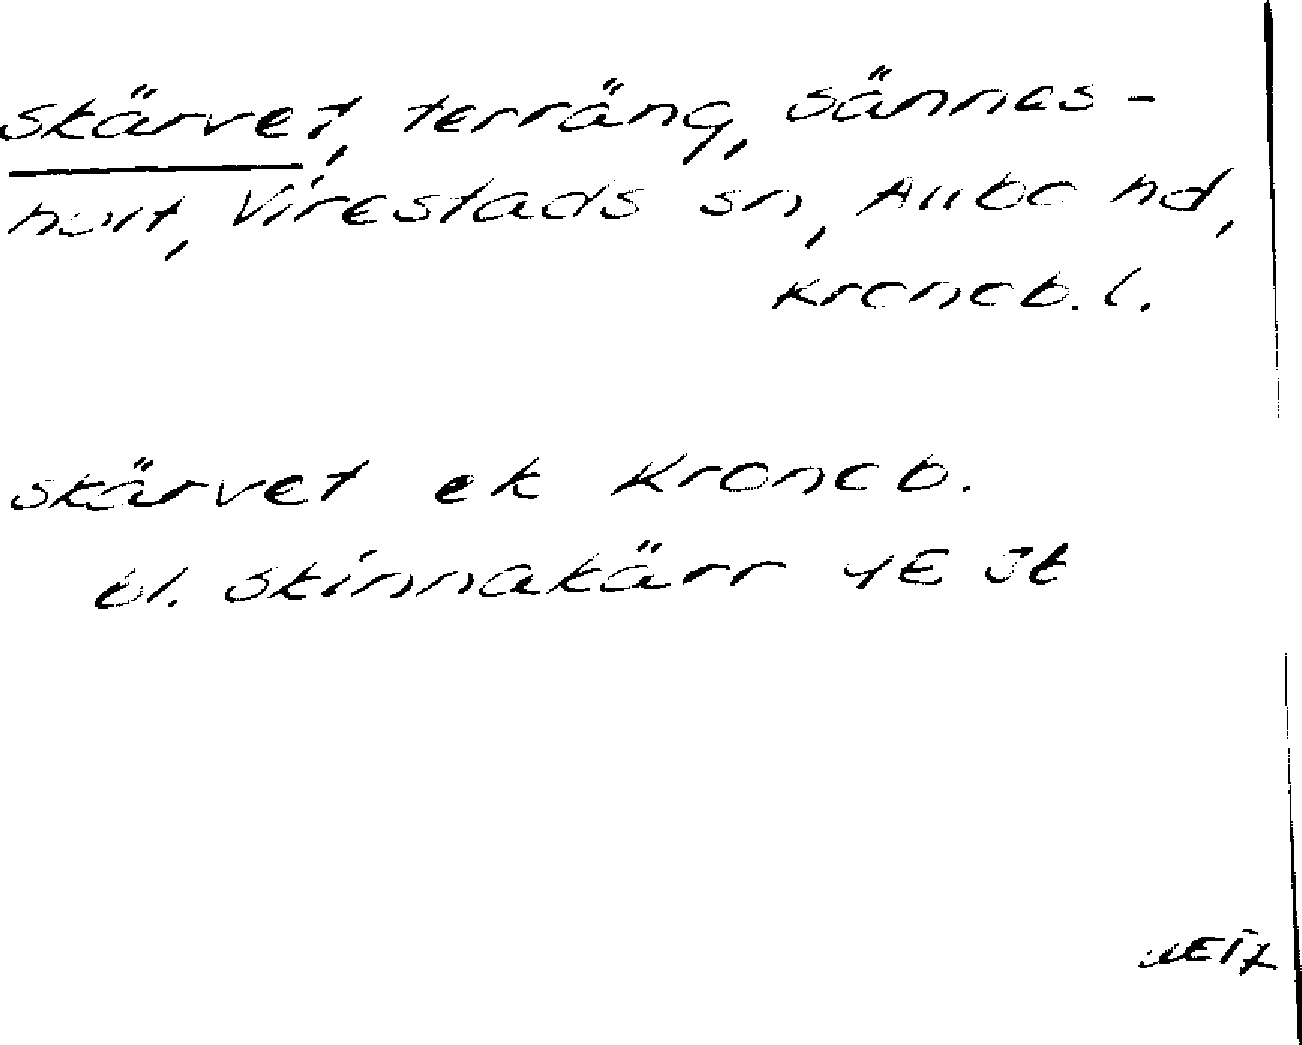 skärvet, terräng, sännes-
hult, Virestads sn, Allbo hd,
Kronob. l.
skärvet ek Kronob.
bl. Skinnakärr 4E